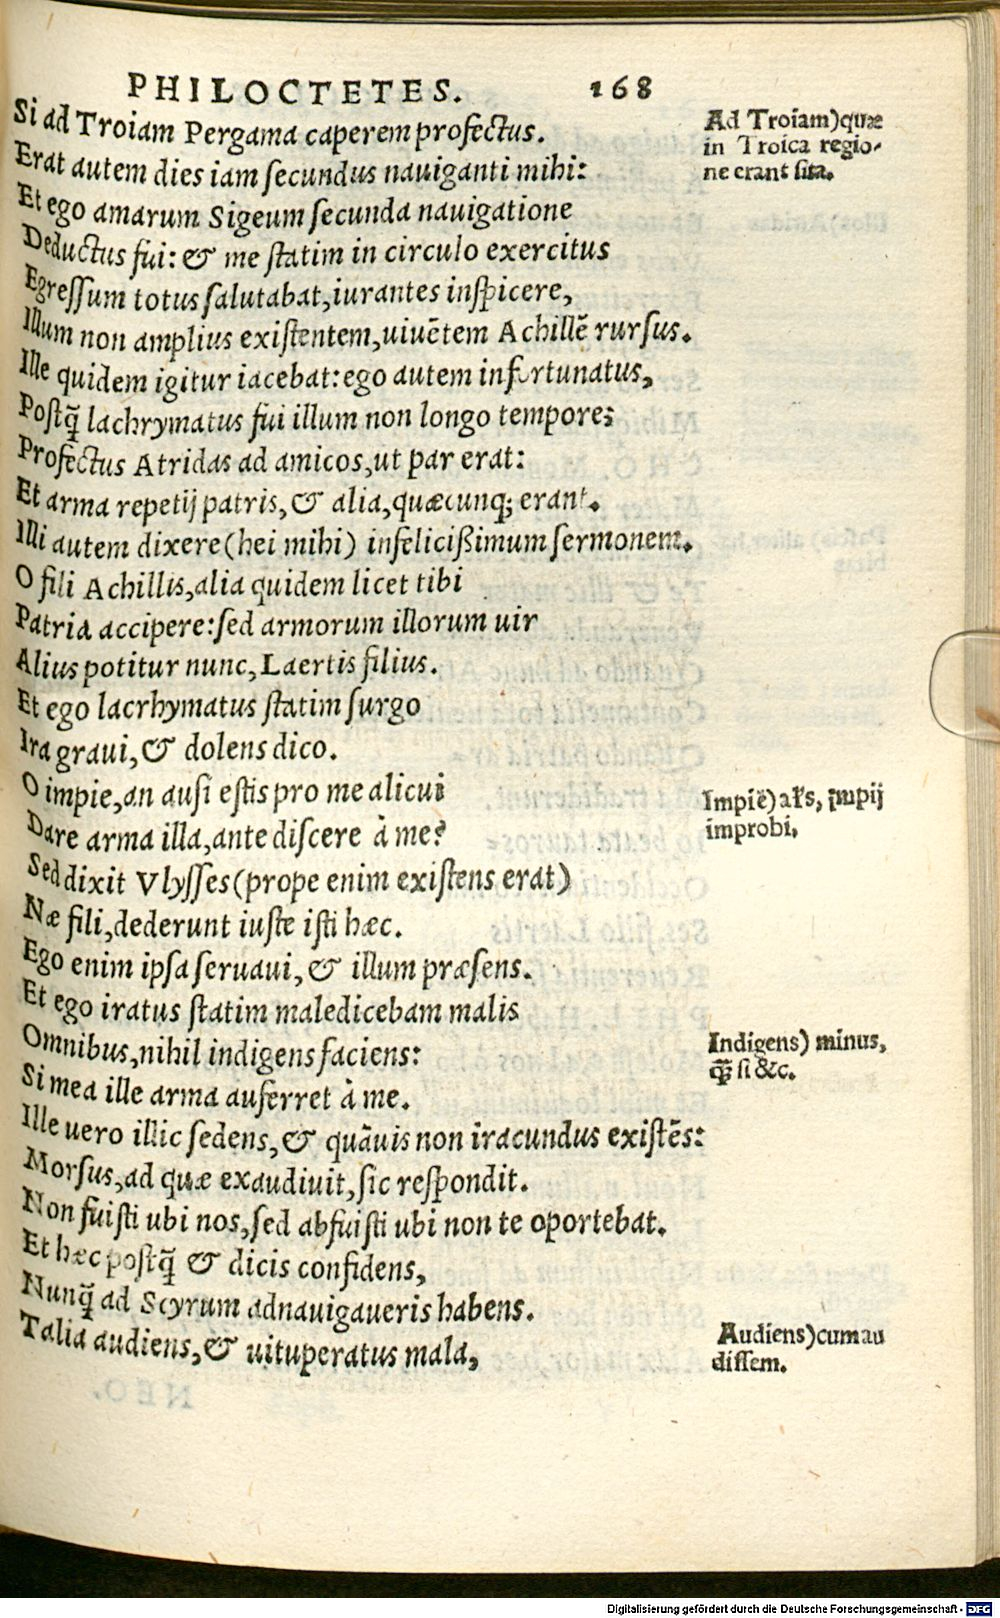 PHILOCTETES. 168
Si ad Troiam Pergama caperem profectus.
Erat autem dies iam ſecundus nauiganti mihi:
Et ego amarum Sigeum ſecunda nauigatione
Deductus fui: & me ſtatim in circulo exercitus
Egreſſum totus ſalutabat, iurantes inſpicere,
Illum non amplius exiſtentem, uiuētem Achillē rurſus.
Ille quidem igitur iacebat: ego autem infortunatus,
Poſtq̃ lachrymatus fui illum non longo tempore;
Profectus Atridas ad amicos, ut par erat:
Et arma repetij patris, & alia, quæcunq; erant.
Illi autem dixere (hei mihi) infelicißimum ſermonem.
O fili Achillis, alia quidem licet tibi
Patria accipere: ſed armorum illorum uir
Alius potitur nunc, Laertis filius.
Et ego lacrhymatus ſtatim ſurgo
Ira graui, & dolens dico.
O impie, an auſi eſtis pro me alicui
Dare arma illa, ante diſcere à me?
Sed dixit Vlyſſes (prope enim exiſtens erat)
Næ fili, dederunt iuſte iſti hæc.
Ego enim ipſa ſeruaui, & illum præſens.
Et ego iratus ſtatim maledicebam malis
Omnibus, nihil indigens faciens:
Si mea ille arma auferret à me.
Ille uero illic ſedens, & quāuis non iracundus exiſtēs:
Morſus, ad quæ exaudiuit, ſic reſpondit.
Non fuiſti ubi nos, ſed abfuiſti ubi non te oportebat.
Et hæc poſtq̃ & dicis confidens,
Nunq̃ ad Scyrum adnauigaueris habens.
Talia audiens, & uituperatus mala,
Ad Troiam) quæ
in Troica regio-
ne erant ſita.
Impiē) als, impij
improbi.
Indigens) minus,
q̃ ſi &c.
Audiens) cum au
diſſem.
Digitalisierung gefördert durch die Deutsche Forschungsgemeinschaft - DFG